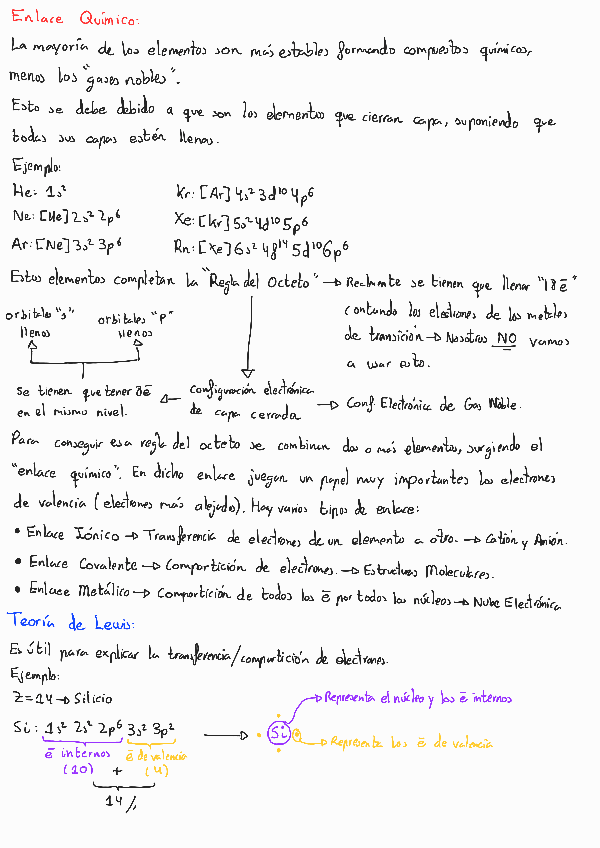 Enlace Químico:
La mayoría de los elementos son más estables formando compuestos químicos,
menos los "gases nobles".
Esto se debe debido a que son los elementos que cierran capa, suponiendo que
todas sus capas estén llenas.
Ejemplo:
He: 1s² Kr: [Ar] 4s² 3d¹⁰ 4p⁶
Ne: [He] 2s² 2p⁶ Xe: [Kr] 5s² 4d¹⁰ 5p⁶
Ar: [Ne] 3s² 3p⁶ Rn: [Xe] 6s² 4f¹⁴ 5d¹⁰ 6p⁶
Estos elementos completan la "Regla del Octeto" → Realmente se tienen que llenar "18 ē"
contando los electrones de los metales
de transición → Nosotros NO vamos
a usar esto.
orbitales "s" llenos
orbitales "p" llenos
Se tienen que tener 8ē
en el mismo nivel.
Configuración electrónica
de capa cerrada → Conf. Electrónica de Gas Noble.
Para conseguir esa regla del octeto se combinan dos o más elementos, surgiendo el
"enlace químico". En dicho enlace juegan un papel muy importantes los electrones
de valencia (electrones más alejado). Hay varios tipos de enlace:
• Enlace Iónico → Transferencia de electrones de un elemento a otro. → Catión y Anión.
• Enlace Covalente → Compartición de electrones. → Estructuras Moleculares.
• Enlace Metálico → Compartición de todos los ē por todos los núcleos → Nube Electrónica
Teoría de Lewis:
Es útil para explicar la transferencia/compartición de electrones.
Ejemplo:
Z=14 → Silicio
Si: 1s² 2s² 2p⁶ 3s² 3p²
ē internos
(10)
+
ē de valencia
(4)
14
Si
Representa el núcleo y los ē internos
Representa los ē de valencia